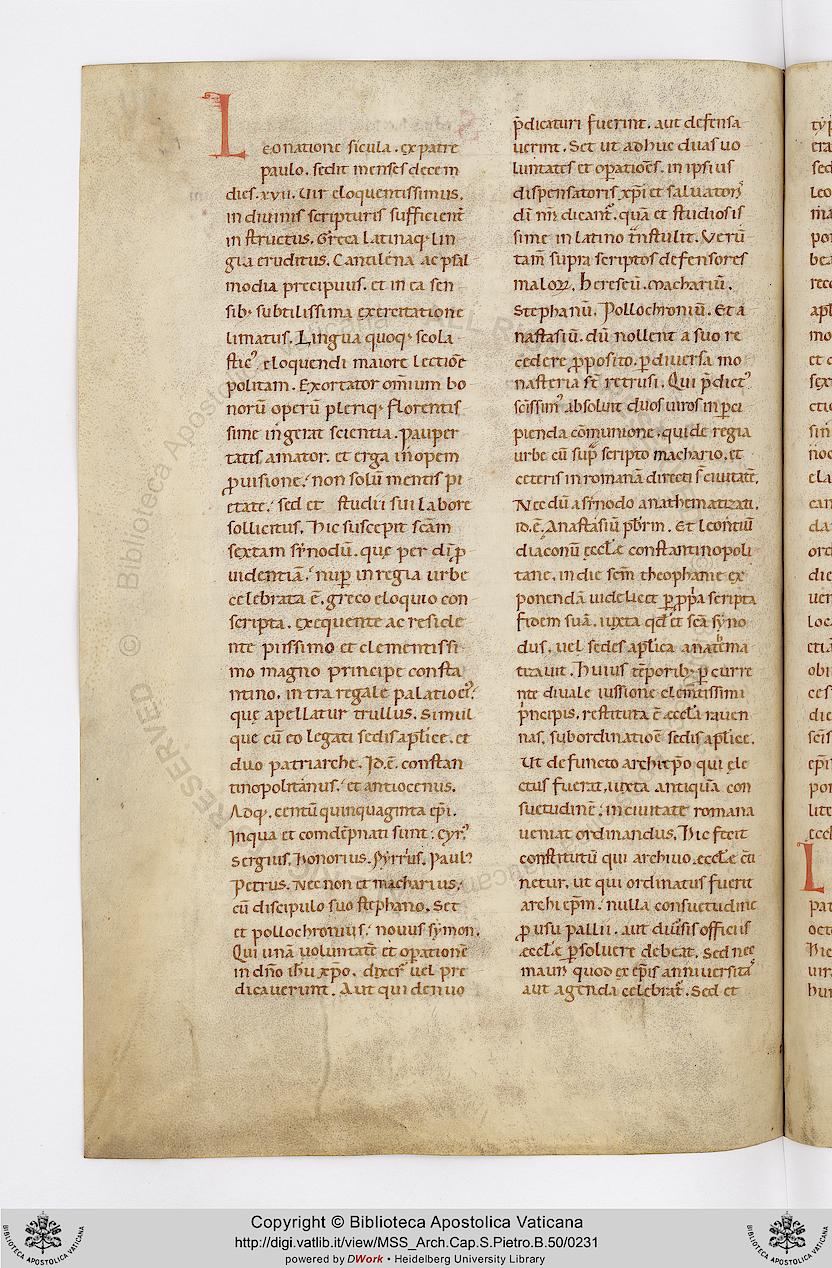 Leo natione sicula. ex patre
paulo. sedit menses decem
dies. xvii. Uir eloquentissimus.
in diuinis scripturis sufficient̄
instructus. Greca latinaq· lin
gua eruditus. Cantilena ac psal
modia precipuus. et in ea sen
sib· subtilissima exercitatione
limatus. Lingua quoq· scola
stic᾿ eloquendi maiore lectiōe
politam. Exortator om̄ium bo
norū operū pleriq· florentis
sime ingerat scientia. pauper
tatis amator. et erga inopem
ꝓuisione. non solū mentis pi
etate. sed et studii sui labore
sollicitus. Hic suscepit sc̄am
sextam synodū. que per dī ꝓ
uidentiā. nup̄ in regia urbe
celebrata ē. greco eloquio con
scripta. exequente ac reside
nte piissimo et clementissi
mo magno principe consta
ntino. intra regale palatio ei᾿
que apellatur trullus. Simul
que cū eo legati sedis ap̄lice. et
duo patriarche. Id.ē. constan
tinopolitanus. et antiocenus.
Adq·. centū quinquaginta ep̄i.
Inqua et comdēpnati sunt. cyr᾿
Sergius. honorius. Pyrrus. Paul᾿
Petrus. Nec non et macharius.
cū discipulo suo stephano. Set
et pollochronius. nouus symon.
Qui unā uoluntatē et oꝑationē
in dn̄o ih̄u xp̄o. dixer̄ vel pre
dicauerunt. Aut qui denuo
p̄dicaturi fuerint. aut defensa
uerint. Set ut adhuc duas uo
luntates et oꝑatiōes. in ipsius
dispensatoris xp̄i et saluatoris
dī nr̄i dicant᾿. quā et studiosis
sime in latino trānstulit. Verū
tam̄ supra scriptos defensores
maloꝝ. hereseū. machariū.
Stephanū. Pollochroniū. Et a
nastasiū. dū nollent a suo re
cedere ꝓposito. ꝑ diuersa mo
nasteria st̄ retrusi. Qui p̄dict᾿
sc̄issim᾿ absoluit duos uiros in ꝑci
pienda cōmunione. qui de regia
urbe cū sup̄ scripto machario. et
ceteris in romanā directi st̄ ciuitatē.
Nec dū a synodo anathematizati.
id.ē. Anastasiū p̄brm. Et leontiū
diaconū eccl̄e constantinopoli
tane. in die sc̄m theophanie ex
ponendā uidelicet ꝑ ꝓp̄a scripta
fidem suā. iuxta qd̄ et sc̄a syno
dus. vel sedes ap̄lica anatēma
tizauit. Huius tēporib· ꝑ curre
nte diuale iussione clemtissimi
p̄ncipis. restituta ē eccl̄a rauen
nas. sub ordinatiōe sedis ap̄lice.
Ut defuncto archiep̄o qui ele
ctus fuerit. iuxta antiquā con
suetudinē. in ciuitate romana
ueniat ordinandus. Hic fecit
constitutū qui archiuo eccl̄e cō
netur. ut qui ordinatus fuerit
archiep̄m. nulla consuetudine
ꝓ usu pallii. aut diuersis officiis
eccl̄e ꝑsoluere debeat. Sed nec
mauri quod ex ep̄is anniuersita᾿
aut agenda celebrat̄. Sed et
Copyright © Biblioteca Apostolica Vaticana
http://digi.vatlib.it/view/MSS_Arch.Cap.S.Pietro.B.50/0231
powered by DWork • Heidelberg University Library